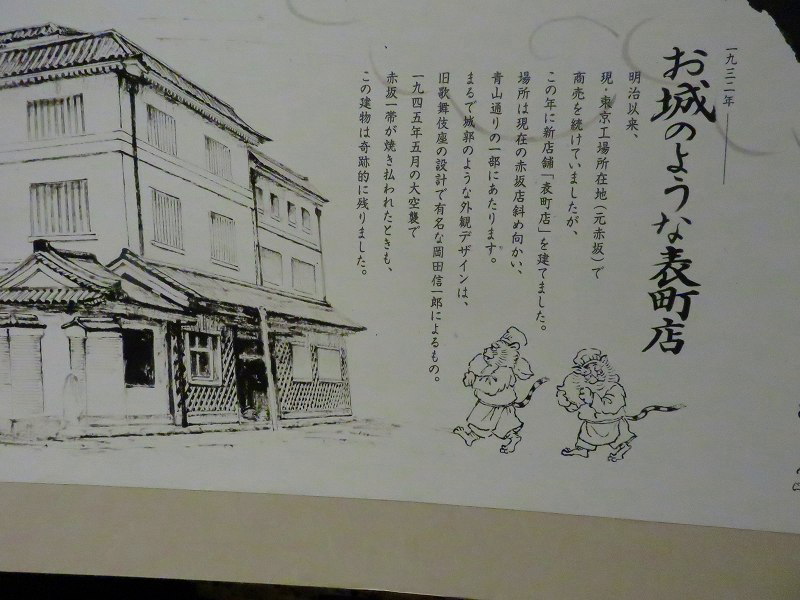 一九三二年
お城のような表町店
明治以来、
現・東京工場所在地(元赤坂)で
商売を続けていましたが、
この年に新店舗「表町店」を建てました。
場所は現在の赤坂店斜め向かい、
青山通りの一部にあたります。
まるで城郭のような外観デザインは、
旧歌舞伎座の設計で有名な岡田信一郎によるもの。
一九四五年五月の大空襲で
赤坂一帯が焼き払われたときも、
この建物は奇跡的に残りました。